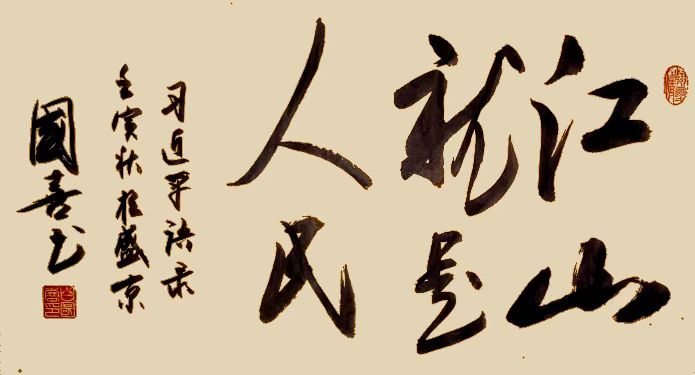 江山
就是
人民
习近平语录
壬寅秋于盛京
國喜书